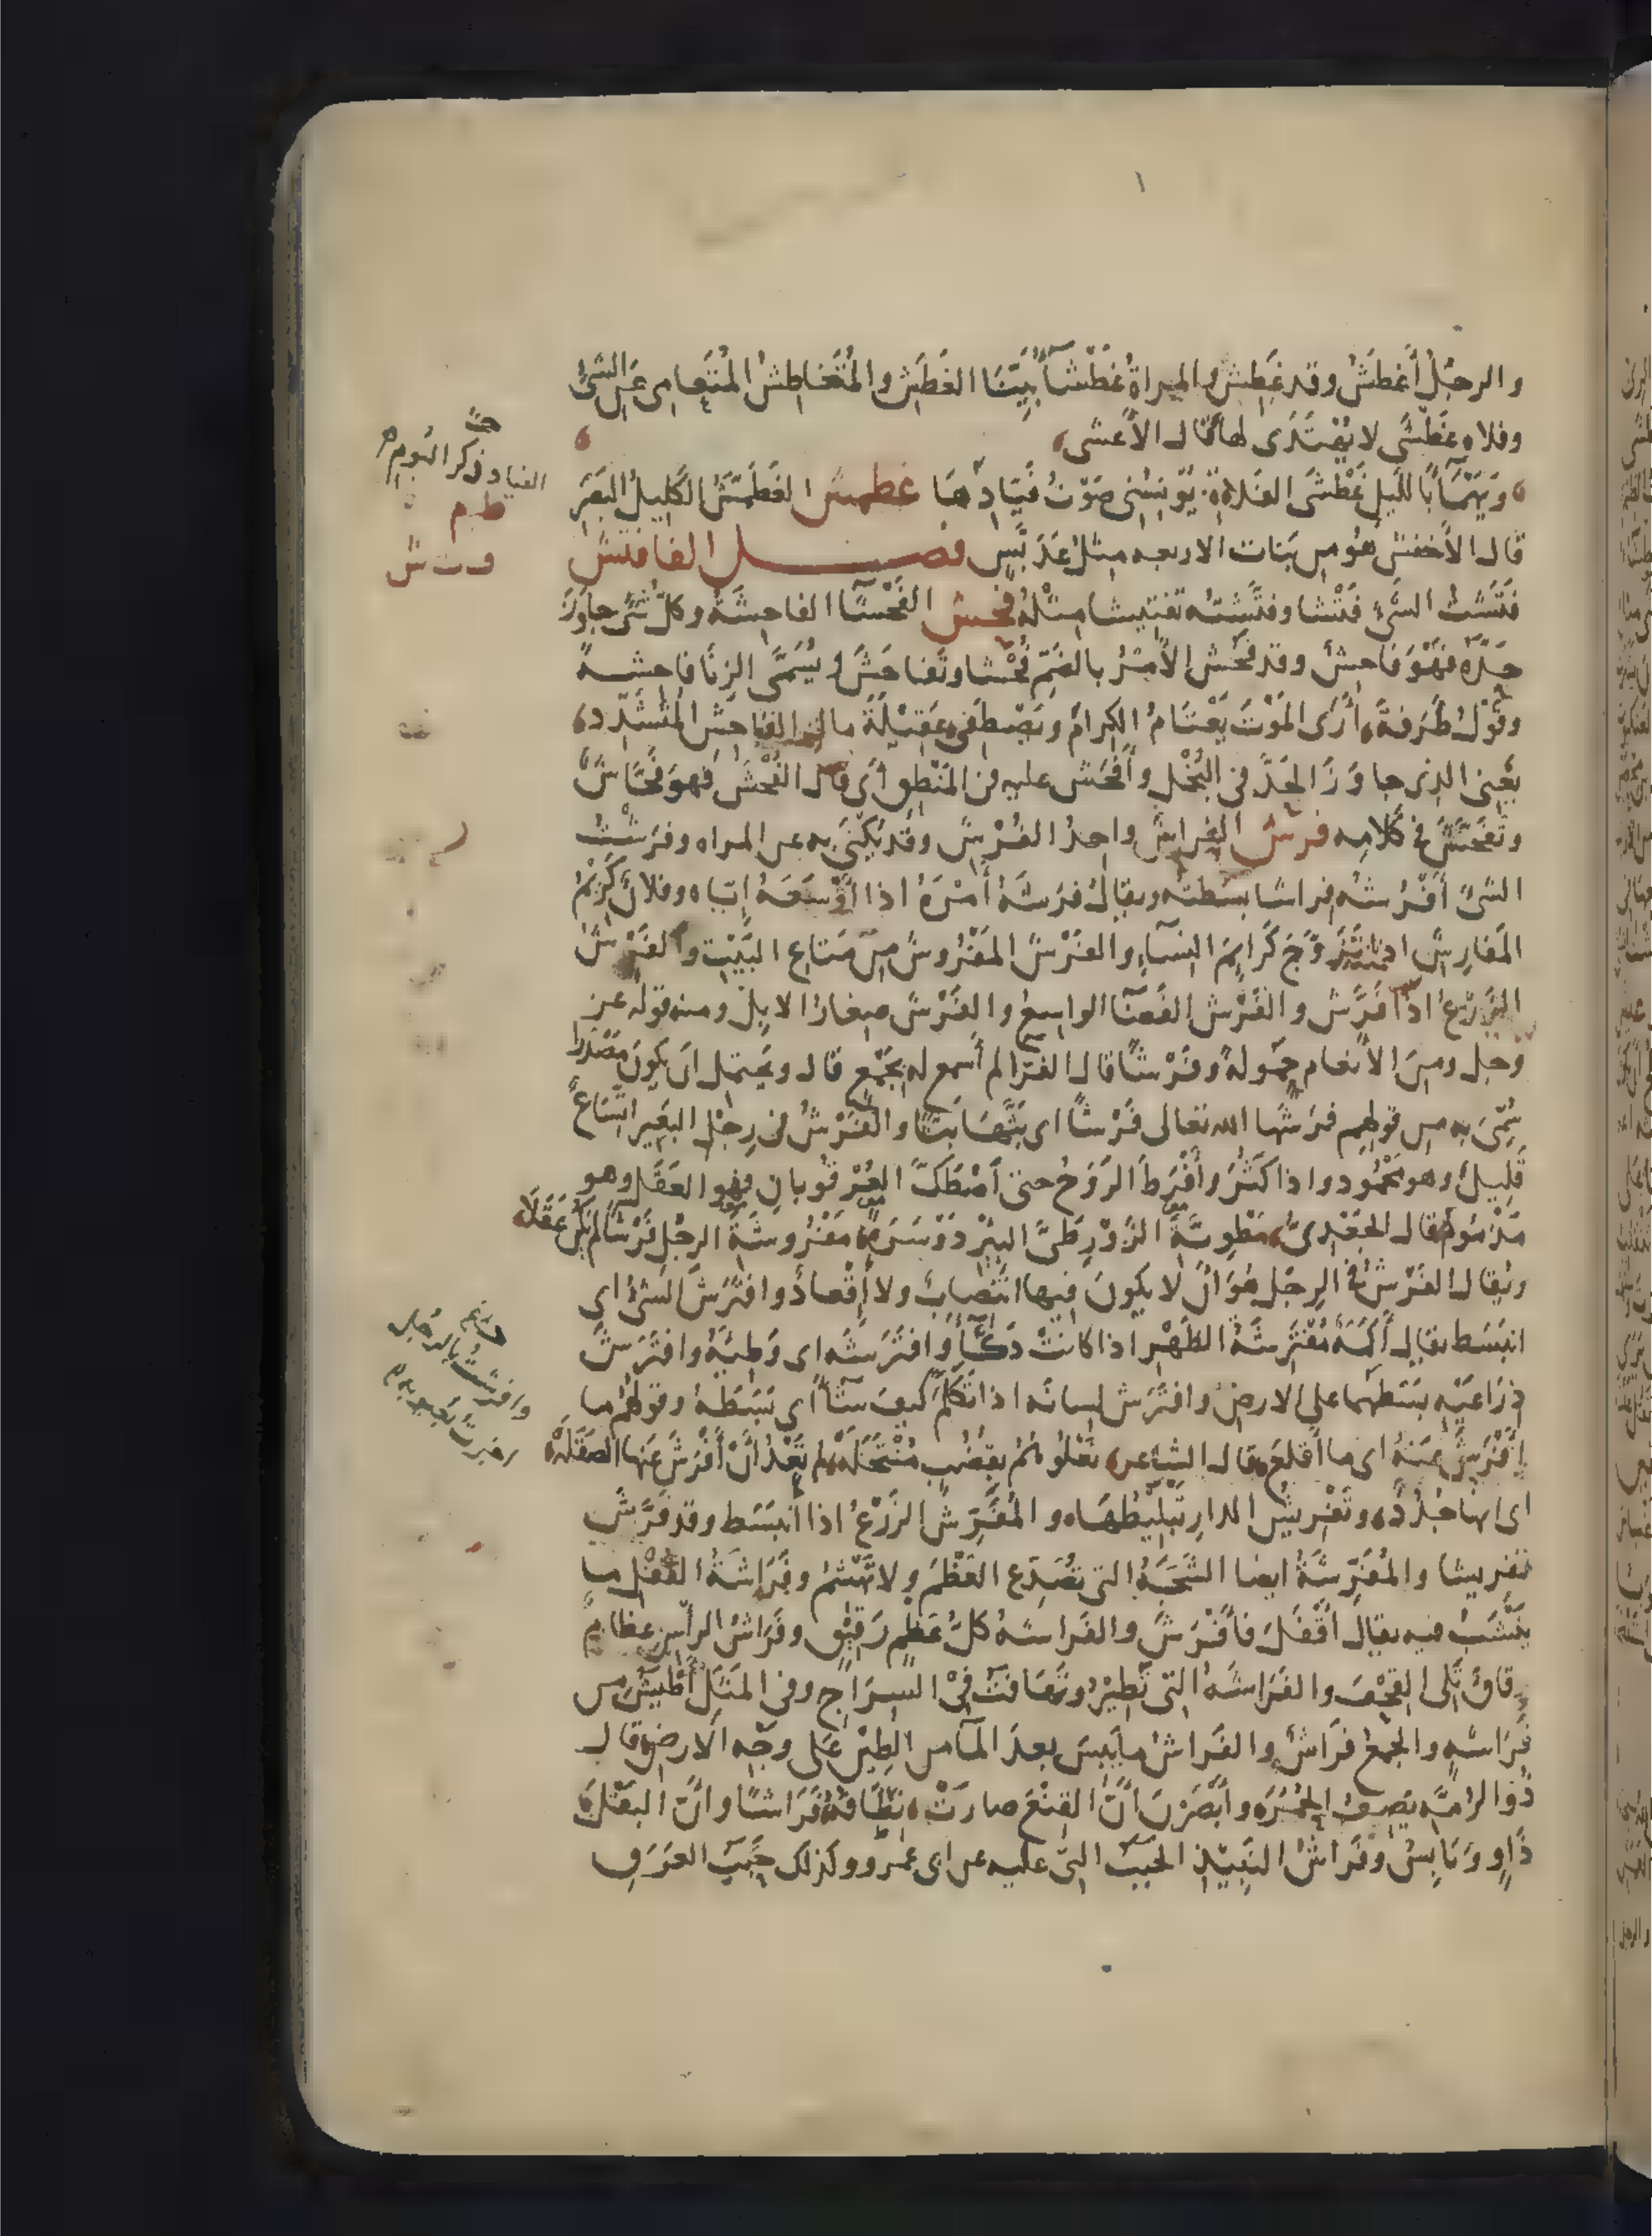 والرجُلُ أَغطَشُ وقد غَطِش والمراةُ غَطْشَآءُ بَيِّنَا الغَطَشِ والمُتَغَاطِشُ المُتَعَامى عَنِ الشىءِ
وفلاه غَطْشَى لا يُهْتَدَى لها قال الأعشى
وَيَهْمَآءَ بالليلِ غَطْشَى الفَلاةِ يُؤنِسُنى صَوْتُ فَيَّادِهَا غطمش الغَطَمَّشُ الكَلِيلُ البَصَرِ
قال الأخفش هُو من بَنات الاربعه مِثلُ عَدَبَّسٍ فصل الفا فتش
فَتَشتُ الشىءَ فَتْشا وفتَّشتُه تفتِيشا مِثْلُهُ فحش الفَحْشَآءُ الفاحِشَةُ وكلُّ شىءٍ جاوَزَ
حَدَّهُ فَهْوَ فاحِش وقد فَحُش الأَمْرُ بالضَمِّ فُحْشا وتَفاحَشَ ويُسَمَّى الزِنَا فاحشةً
وقَوْلُ طَرَفةَ أَرَى المَوْتَ يَعْتَامُ الكِرامَ ويَصْطَفِى عَقِيْلَةَ مالِ الفاحِشِ المُتَشَدِّد
يعنِى الذى جاوَزَ الحَدَّ فى البُخْلِ وأَفْحَش عليه فى المَنْطِقِ أَى قال الفُحْشَ فهو فَحَّاشٌ
وتَفَحَّشَ فى كَلامِه فرش الفِرَاشُ واحِدُ الفُرُشِ وقد يُكْنَى به عن المراه وفَرَشْتُ
الشىَ أَفْرُشُه فِراشا بسَطتُه ويقالُ فَرَشَهُ أَمْرَهُ اذا أَوْسَعَهُ إِيّاه وفلانٌ كَرِيمُ
المَفارِشِ اذا تَزَوَّجَ كَرَايِمَ النِسَآءِ والفَرْشُ المَفْرُوشُ مِنْ مَتاعِ البَيْتِ والفَرْشُ
الزَرْعُ اذا فَرَّشَ والفَرْش الفَضَآءُ الواسِعُ والفَرْشُ صِغارُ الاِبِلِ ومنه قوله عز
وجل ومِنَ الأنعام حَمُولَةً وفَرْشًا قال الفَرّا لم أَسمع له بِجَمْعٍ قال ويَحتمل ان يكونَ مَصْدَرا
سُمِّىَ به مِن قولهم فرَشَها الله تعالى فَرْشًا اى بَثَّهَا بَثًّا والفَرْشُ فى رِجْلِ البَعِيرِ اتِّسَاعٌ
قَلِيلٌ وهو مَحْمُودٌ واذا كَثُرَ وأَفْرَطَ الرَوَحُ حتى اصْطَكَّ العُرْقُوبانِ فهو العَقَل وهو
مَذْمُومٌ قال الجَعْدِىُّ مَطْوِيَّةَ الزَوْرِ طَىَّ البِئْرِ دَوْسَرَةً مَفْرُوشَةَ الرِجْلِ فَرْشًا لَمْ يَكُنْ عَقَلَا
ويُقال الفَرْشُ فى الرِجْلِ هُوَ أَنْ لا يكونَ فيها انْتِصابٌ ولا إِقْعادٌ وافْتَرَشَ الشىْءُ اى
انبَسَط يقال أَكَمَةٌ مُفْتَرِشَةُ الظَهْرِ اذا كانَتْ دَكَّآءَ وافْتَرَشَه اى وَطِئَهُ وافتَرَشَ
ذِرَاعَيْه بسَطَهما على الارض وافتَرَش لِسانَه اذا تكَلَّمَ كيفَ شآءَ اى بَسَطَهُ وقولهُم ما
افْتَرَشَ عَنهُ اى ما أَقلَعَ قال الشاعر نَعْلُوهُمُ بِقُضُبٍ مُنْتَخَلَهْ لم تَعْدُ أَنْ أَفْرَشَ عَنها الصَقَلَهْ
اى انها جُدُدٌ وتَفْرِيشُ الدارِ تَبْلِيطُهَا والمُفَرِّشُ الزَرْعُ اذا انبَسَط وقد فَرَّشَ
تفرِيشا والمُفَرِّشَةُ ايضا الشَجَّةُ التى تَصْدَع العَظْمَ ولا تَهْشِمُ وفَرَاشَةُ القُفْلِ ما
يَنْشَبُ فيه يقال أَقْفَلَ فأَفْرَشَ والفَراشه كلُّ عَظْمٍ رَقِيقٍ وفَرَاشُ الرأسِ عظامٌ
رِقاقٌ تَلِى القِحْفَ والفَرَاشَهُ التى تَطِيرُ وتَهَافَتُ فى السِرَاجِ وفى المَثَلِ أَطْيَشُ من
فَرَاشَهٍ والجَمعُ فَرَاشٌ والفَراشُ ما يَبِسَ بعدَ المَآءِ من الطِينِ عَلى وجْه الارضِ قال
ذُو الرُمَّهِ يَصِفُ الحُمُرَ وأَبْصَرْنَ أَنَّ القِنْعَ صارَتْ نِطَافُهُ فَرَاشًا وأَنَّ البَقْلَ
ذَاوٍ ويَابِسُ وفَرَاشُ النَبِيْذِ الحَبَبُ التى عليه عن ابى عمرٍو وكذلك حَبَبُ العَرَقِ
الفياد ذكر البُوم
ط م
وافرشتُ بالرجل